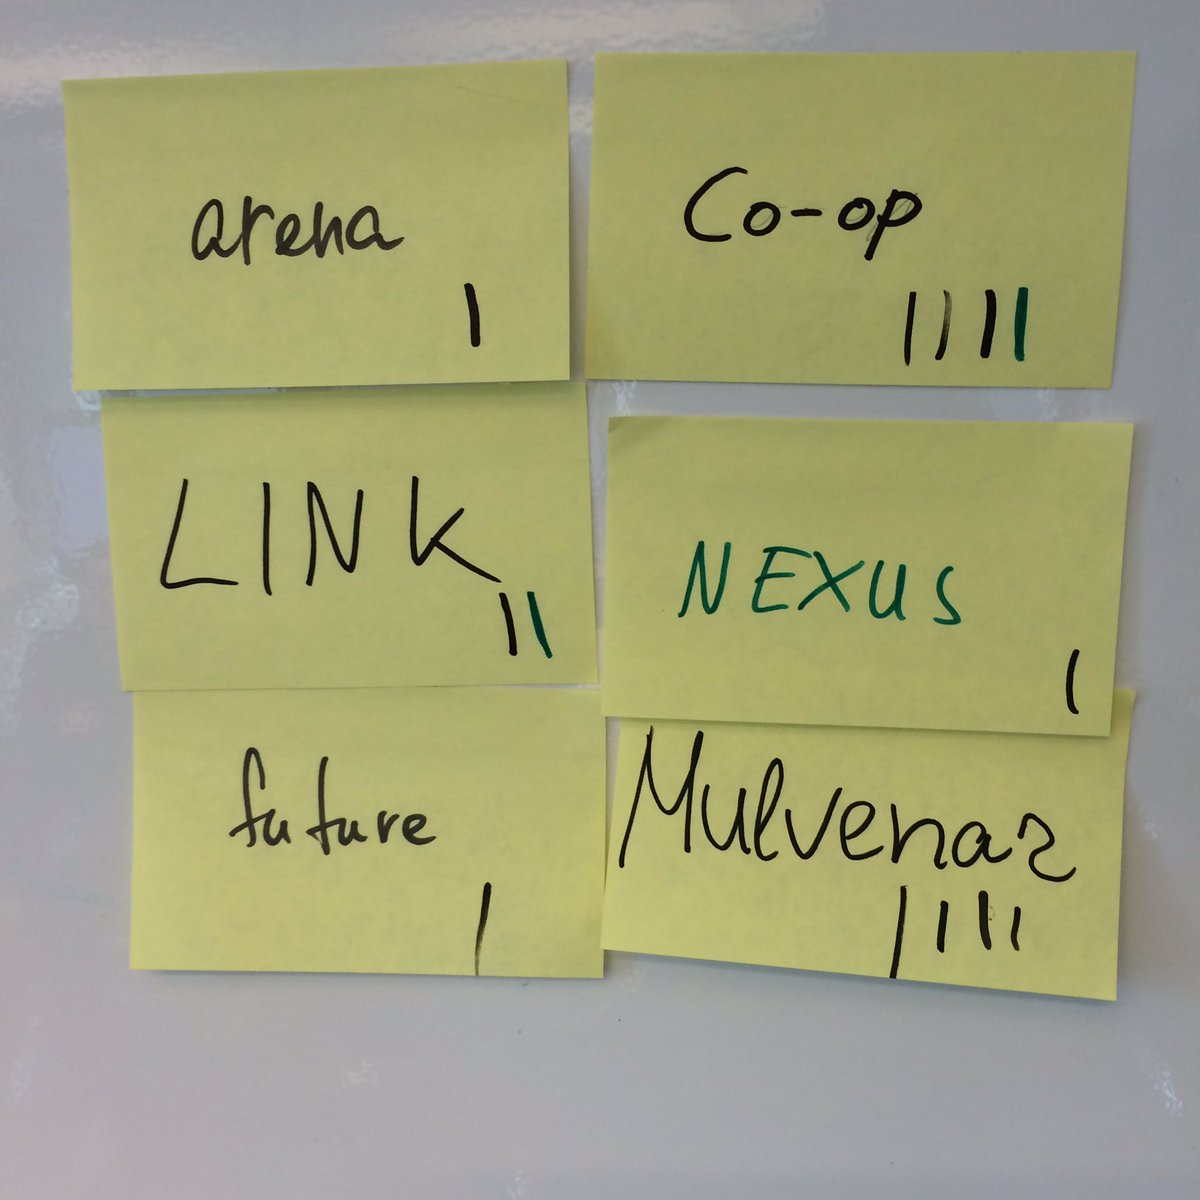 arena
|
Co-op
||||
LINK
||
NEXUS
|
future
|
Mulvenaz
||||